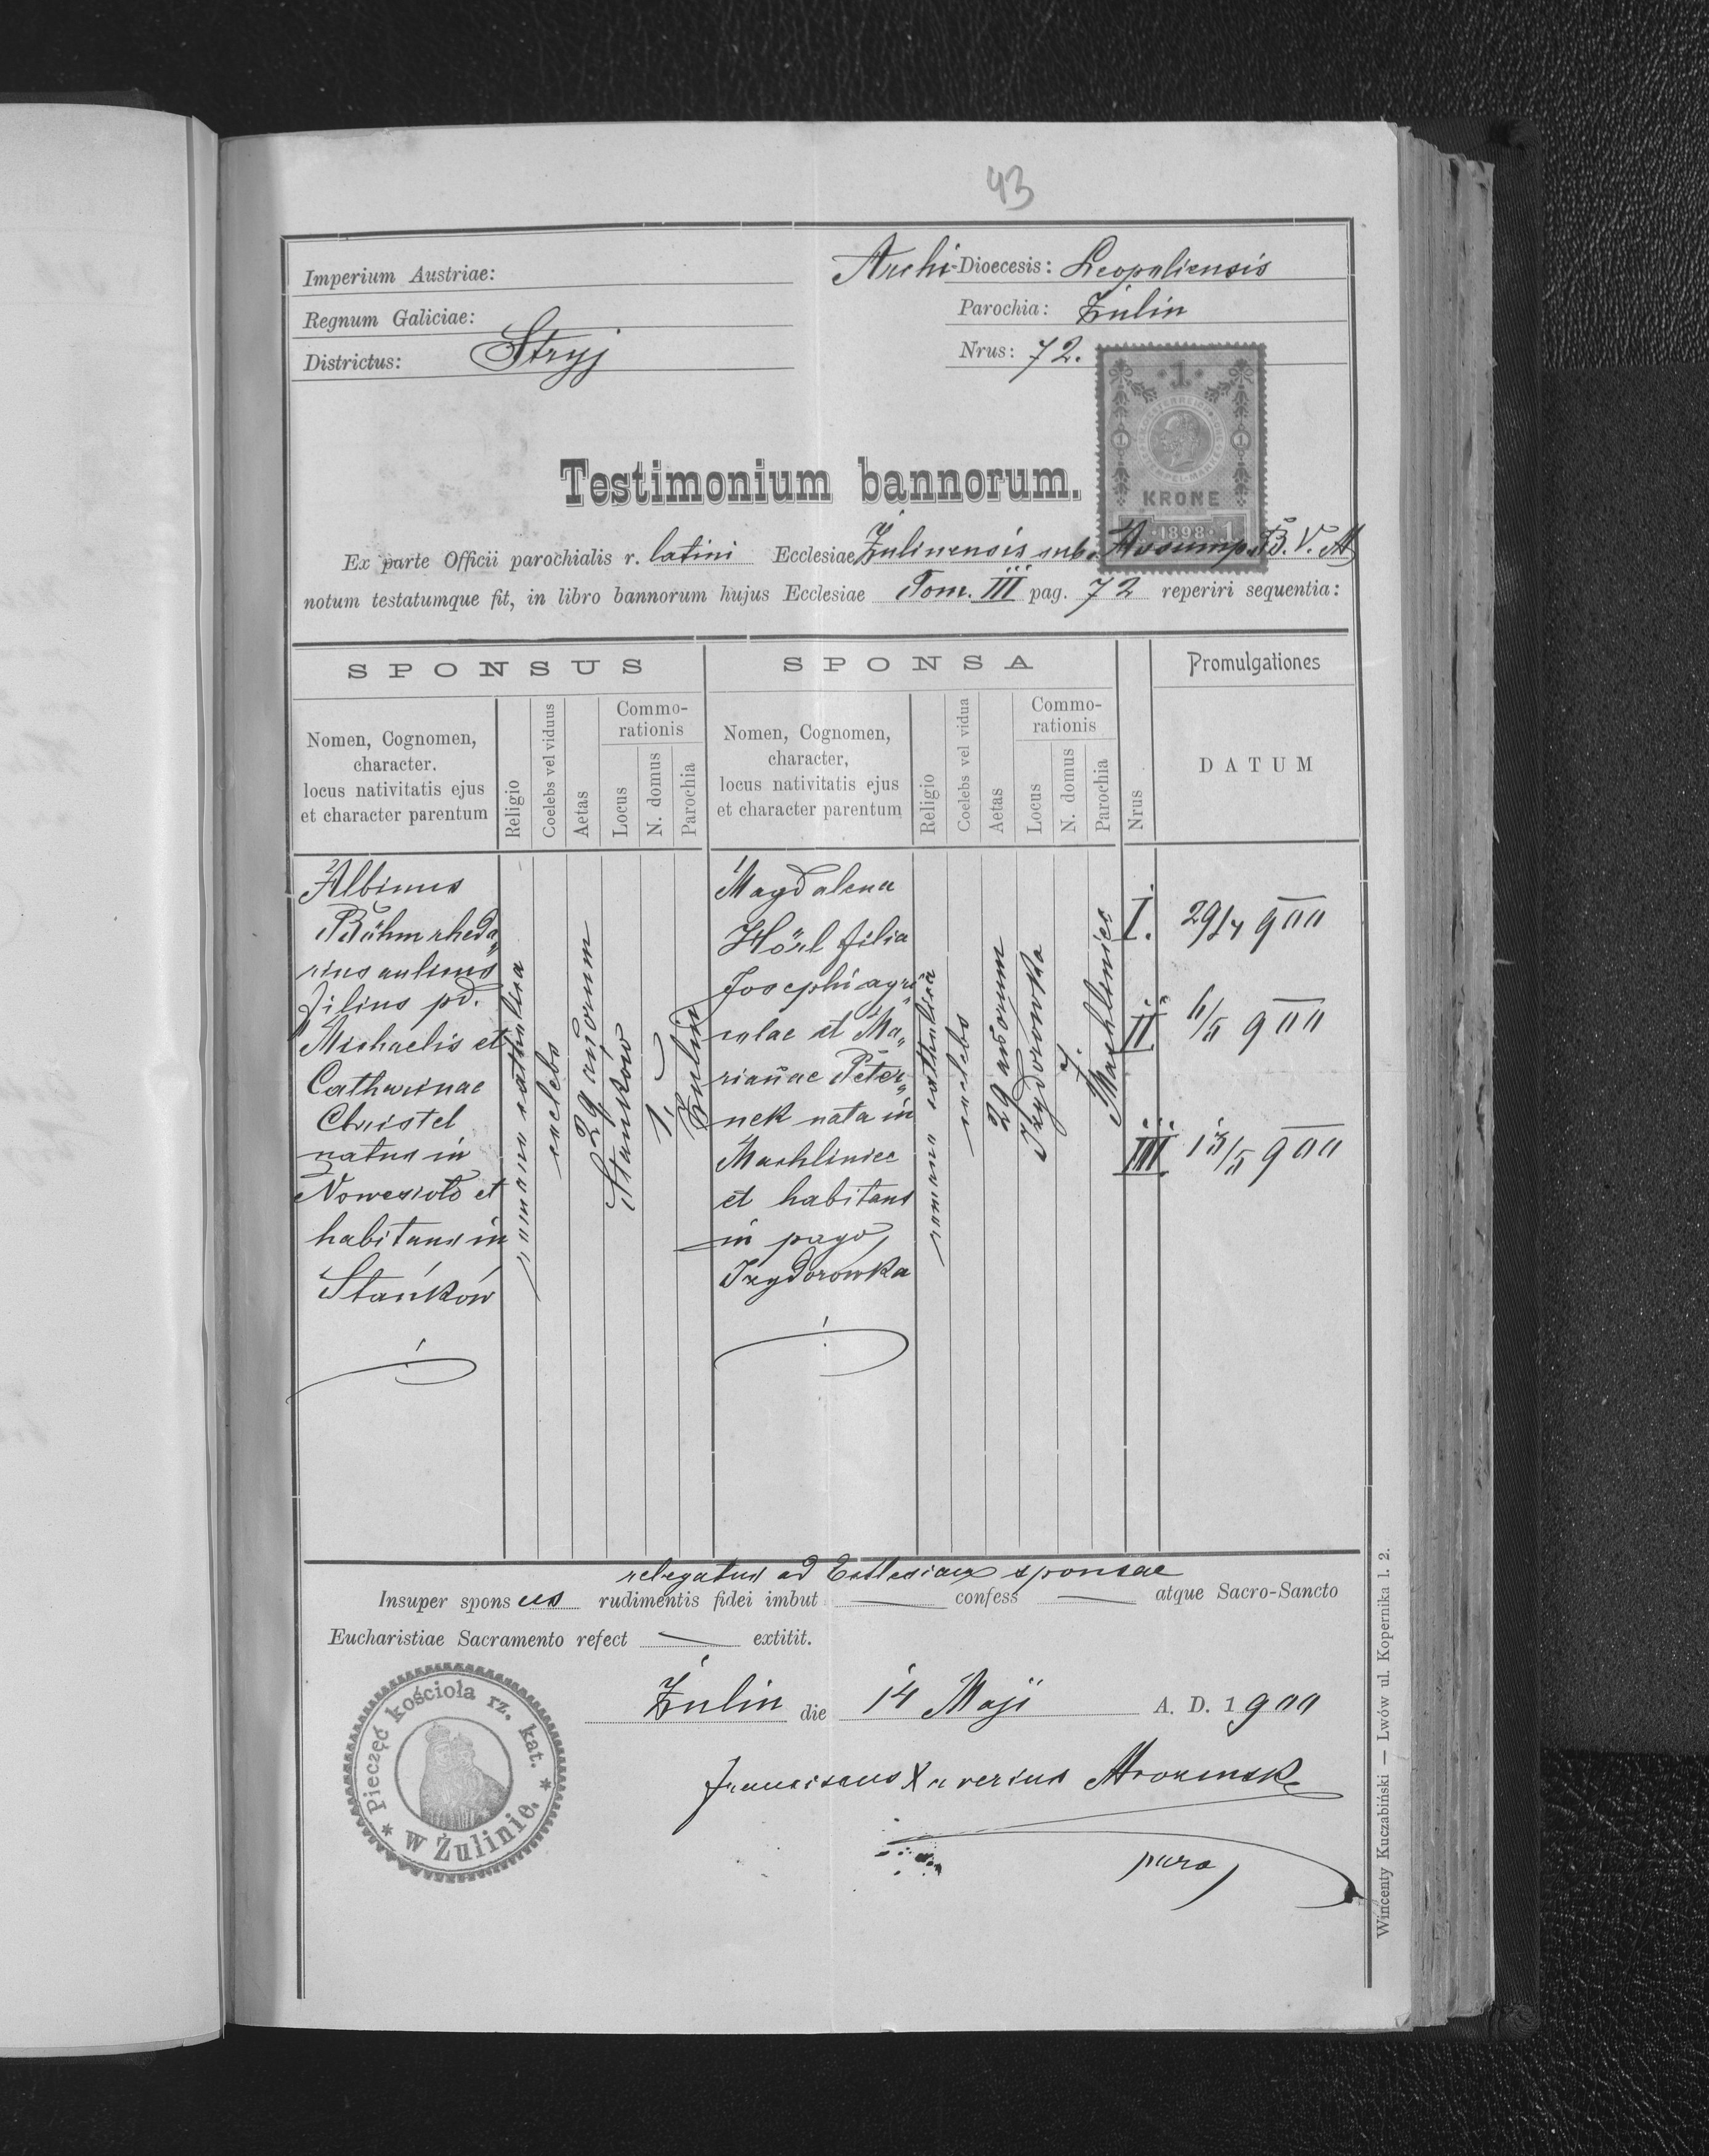 43
Imperium Austriae:
Archi-Dioecesis: Leopoliensis
Regnum Galiciae:
Parochia: Żulin
Districtus: Stryj
Nrus: 72.
1
KRONE
1898 1
Testimonium bannorum.
Ex parte Officii parochialis r. latini Ecclesiae Żulinensis sub. Assump. B. V. M
notum testatumque fit, in libro bannorum hujus Ecclesiae Tom. III pag. 72 reperiri sequentia:
SPONSUS
Nomen, Cognomen,
character.
locus nativitatis ejus
et character parentum
Religio
Coelebs vel viduus
Aetas
Commo-
rationis
Locus
N. domus
Parochia
SPONSA
Nomen, Cognomen,
character,
locus nativitatis ejus
et character parentum
Religio
Coelebs vel vidua
Aetas
Commo-
rationis
Locus
N. domus
Parochia
Nrus
Promulgationes
DATUM
Albinus
Böhm rheda„
rius aulicus
filius pd.
Michaelis et
Catharinae
Christel
natus in
Nowesioło et
habitans in
Stańków
romano catholica
caelebs
29 anorum
Stańków
1
Żulin
Magdalena
Hörl filia
Josephi agri„
colae et Ma„
rianae Peter„
nek nata in
Machliniec
et habitans
in pago
Izydorowka
romano catholica
caelebs
29 anorum
Izydorowka
7.
Machliniec
I. 29/4 900
II 6/5 900
III 13/5 900
relegatus ad Ecclesiam sponsae
Insuper spons us rudimentis fidei imbut — confess — atque Sacro-Sancto
Eucharistiae Sacramento refect — extitit.
Żulin die 14 Maji A. D. 1900
Franciscus Xaverius
paro
* Pieczęć kościoła rz. kat. *
w Żulinie.
Wincenty Kuczabiński — Lwów ul. Kopernika l. 2.